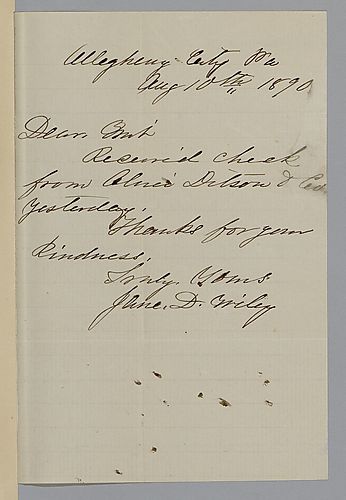 Allegheny City Pa
Aug 10th 1890
Dear
Received check
from Oliver Ditson & Co
yesterday.
Thanks for your
kindness.
Truly Yours
Jane. D. Wiley